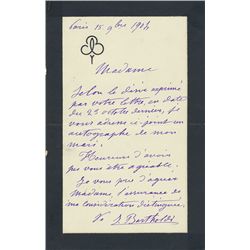 Paris 15 9bre 1904
Madame
Selon le désir exprimé
par votre lettre, en date
du 23 octobre dernier, je
vous adresse ci-joint un
autographe de mon
mari.
Heureuse d'avoir
pu vous être agréable.
Je vous prie d'agréer
Madame l'assurance de
ma considération distinguée.
Bartholdi